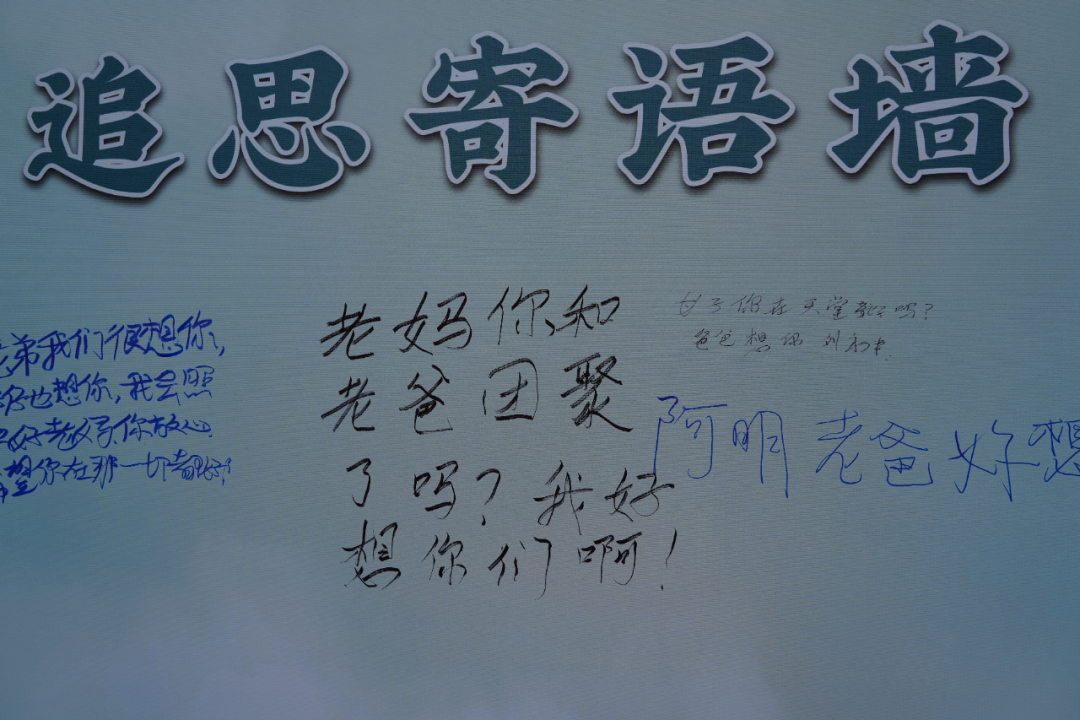 追思寄语墙
弟我们很想你,
也想你,我会照
好老父亲你放心
望你在那一切都好!
老妈你和
老爸团聚
了吗?我好
想你们啊!
你在天堂 吗?
爸爸想你 刘
阿明老爸好想